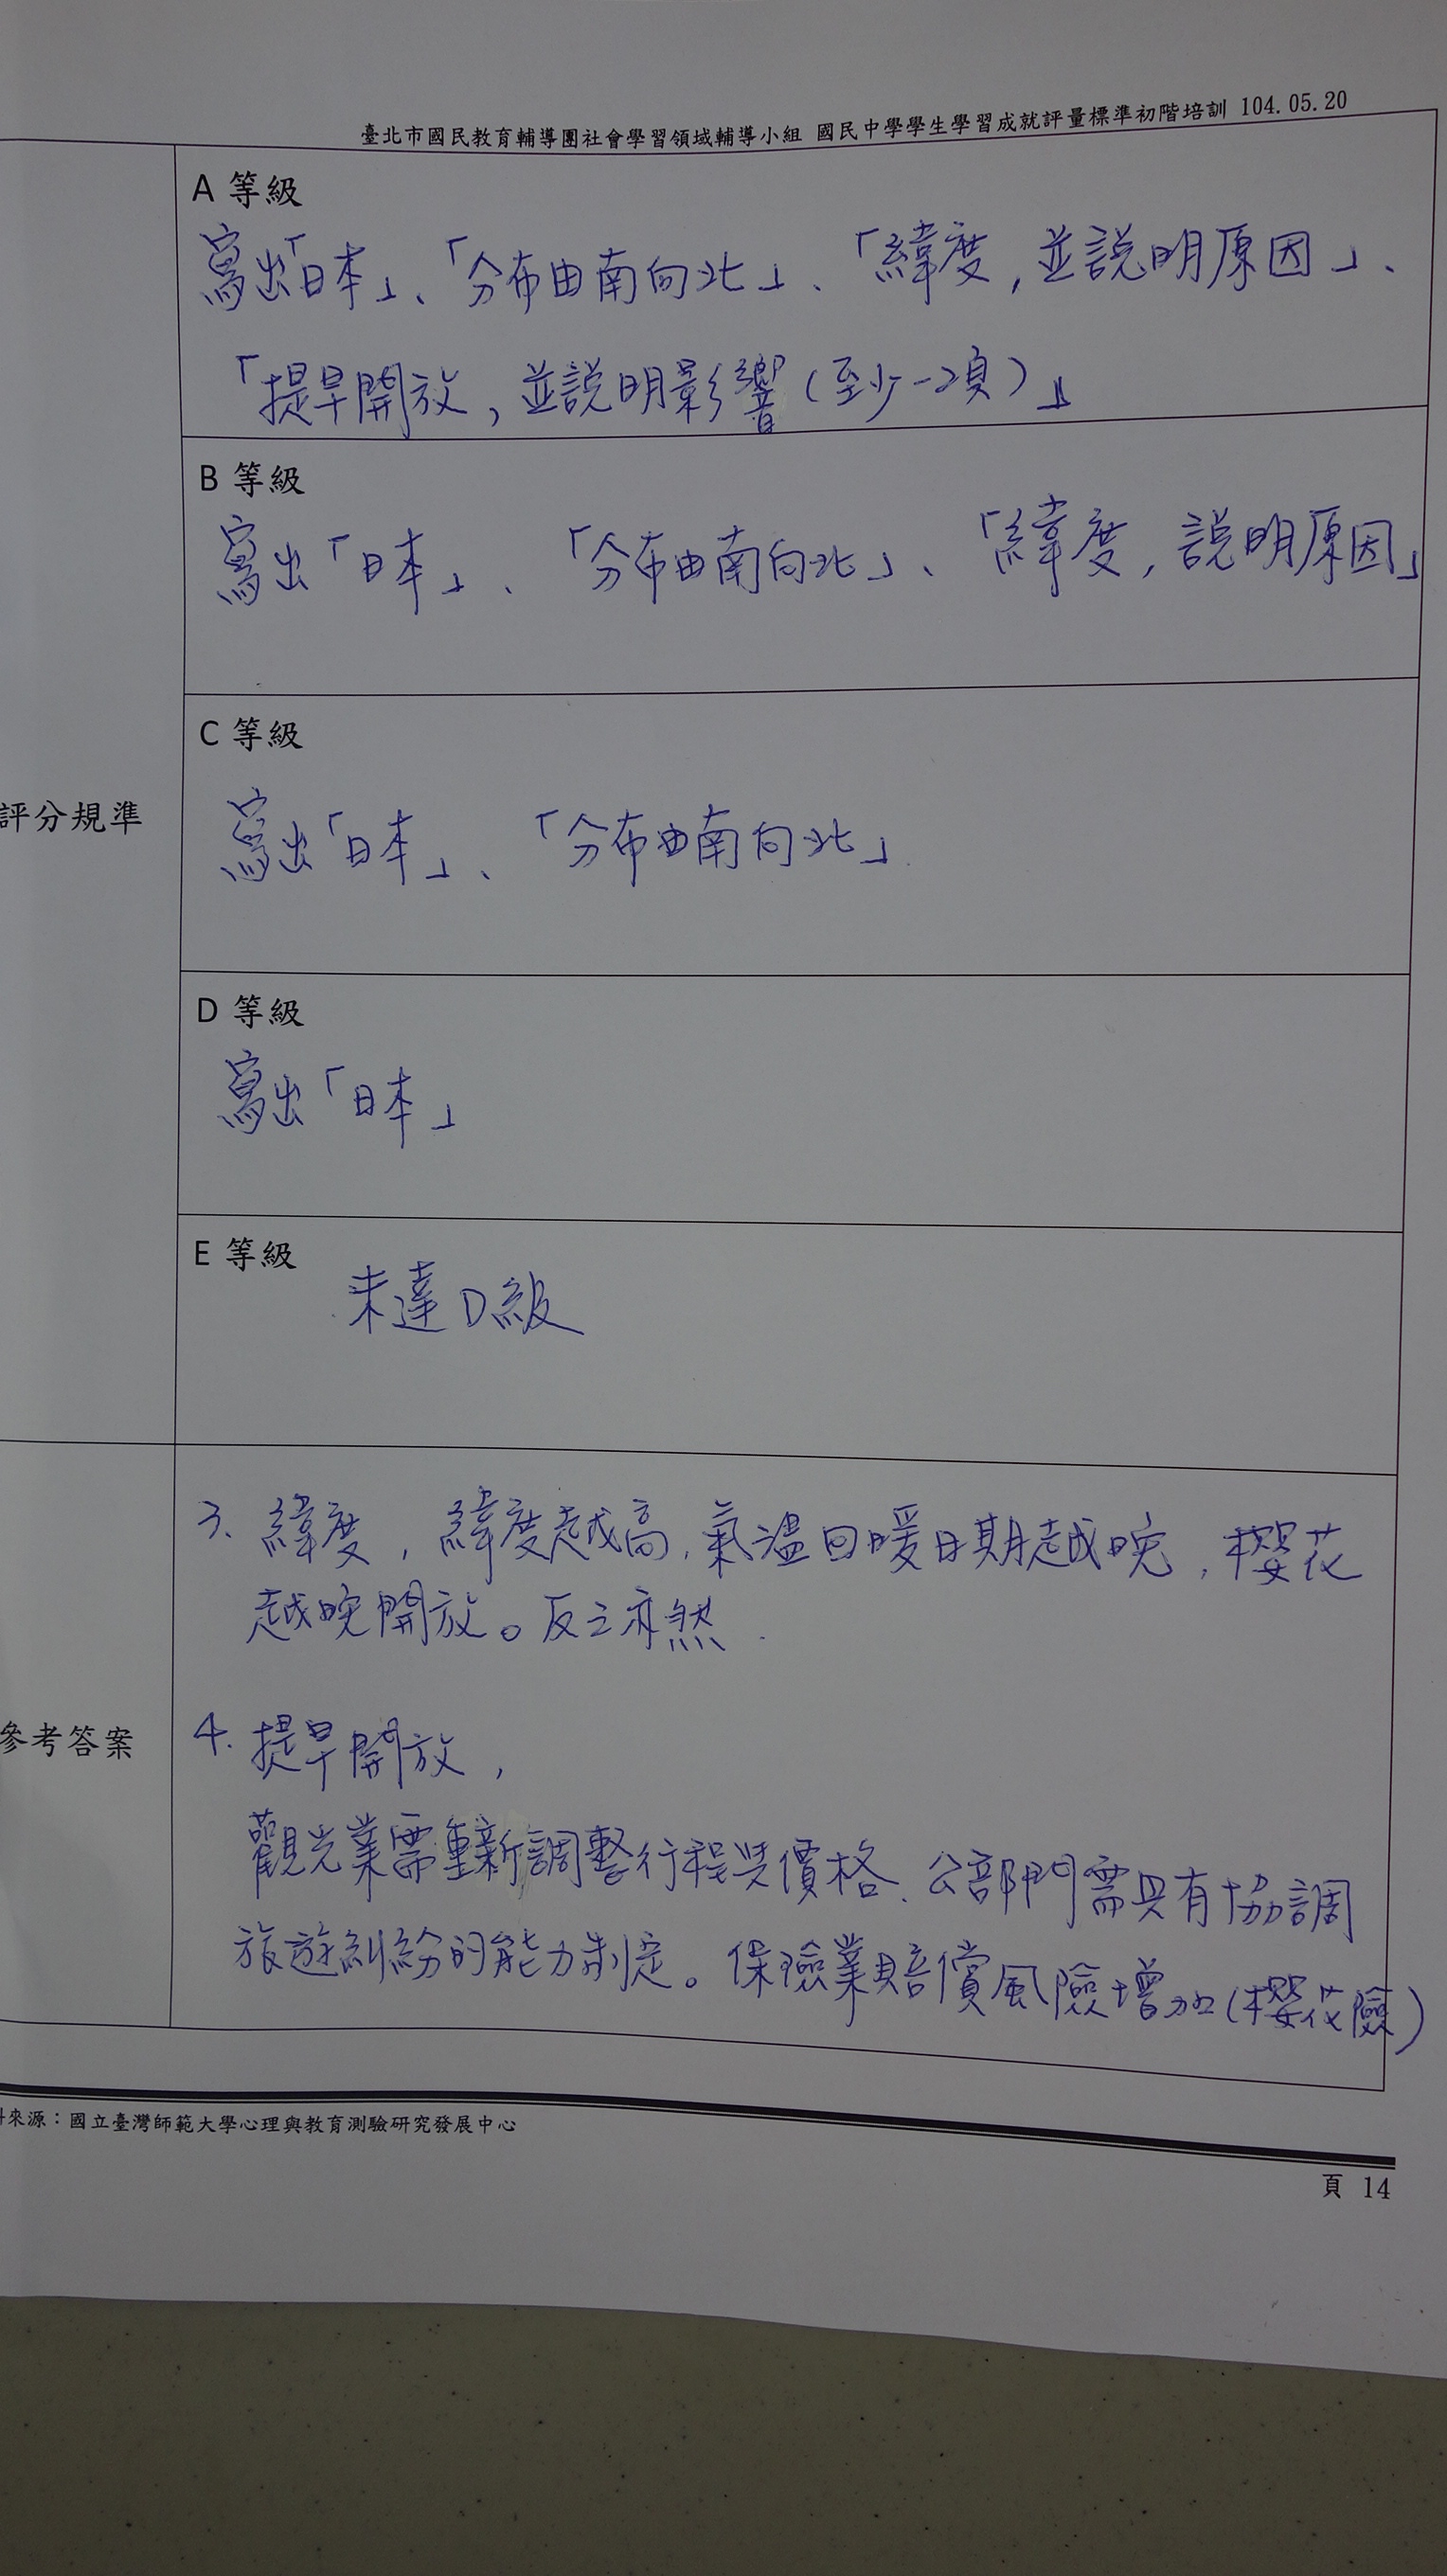 臺北市國民教育輔導團社會學習領域輔導小組 國民中學學生學習成就評量標準初階培訓 104.05.20
評分規準
A 等級
寫出「日本」、「分布由南向北」、「緯度，並說明原因」、
「提早開放，並說明影響（至少一項）」
B 等級
寫出「日本」、「分布由南向北」、「緯度，說明原因」
C 等級
寫出「日本」、「分布由南向北」
D 等級
寫出「日本」
E 等級
未達D級
參考答案
3. 緯度，緯度越高，氣溫回暖日期越晚，櫻花
越晚開放。反之亦然
4. 提早開放，
觀光業需重新調整行程與價格、公部門需具有協調
旅遊糾紛的能力制定。保險業賠償風險增加（櫻花險）
來源：國立臺灣師範大學心理與教育測驗研究發展中心
頁 14